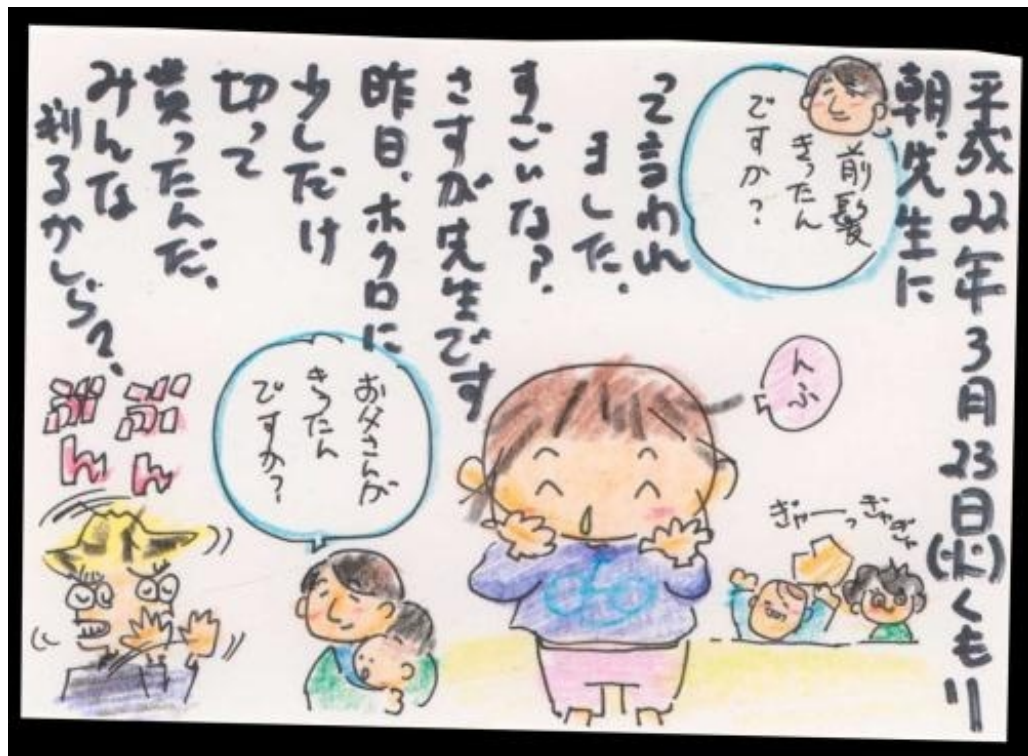 平成22年3月23日(火)くもり
朝、先生に
前髪
きったん
ですか?
って言われ
ました。
すごいな?
さすが先生です
昨日、ホクロに
少しだけ
切って
貰ったんだ。
みんな
判るかしら?、
んふ
ぎゃーっ
お父さんが
きったん
ですか?
ぶん
ぶん